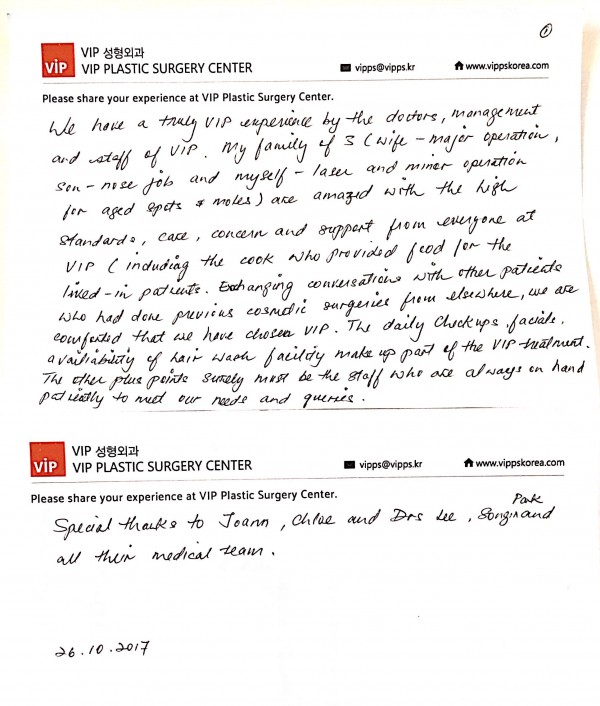 ①
VIP
VIP 성형외과
VIP PLASTIC SURGERY CENTER
vipps@vipps.kr
www.vippskorea.com
Please share your experience at VIP Plastic Surgery Center.
We have a truly VIP experience by the doctors, management
and staff of VIP. My family of 3 (wife - major operation,
son - nose job and myself - laser and minor operation
for aged spots & moles) are amazed with the high
standards, care, concern and support from everyone at
VIP (including the cook who provided food for the
lived-in patients. Exchanging conversations with other patients
who had done previous cosmetic surgeries from elsewhere, we are
comforted that we have chosen VIP. The daily checkups, facials,
availability of hair wash facility make up part of the VIP treatment.
The other plus points surely must be the staff who are always on hand
patiently to meet our needs and queries.
VIP
VIP 성형외과
VIP PLASTIC SURGERY CENTER
vipps@vipps.kr
www.vippskorea.com
Please share your experience at VIP Plastic Surgery Center.
Park
Special thanks to Joann, Chloe and Drs Lee, and
all their medical team.
26.10.2017